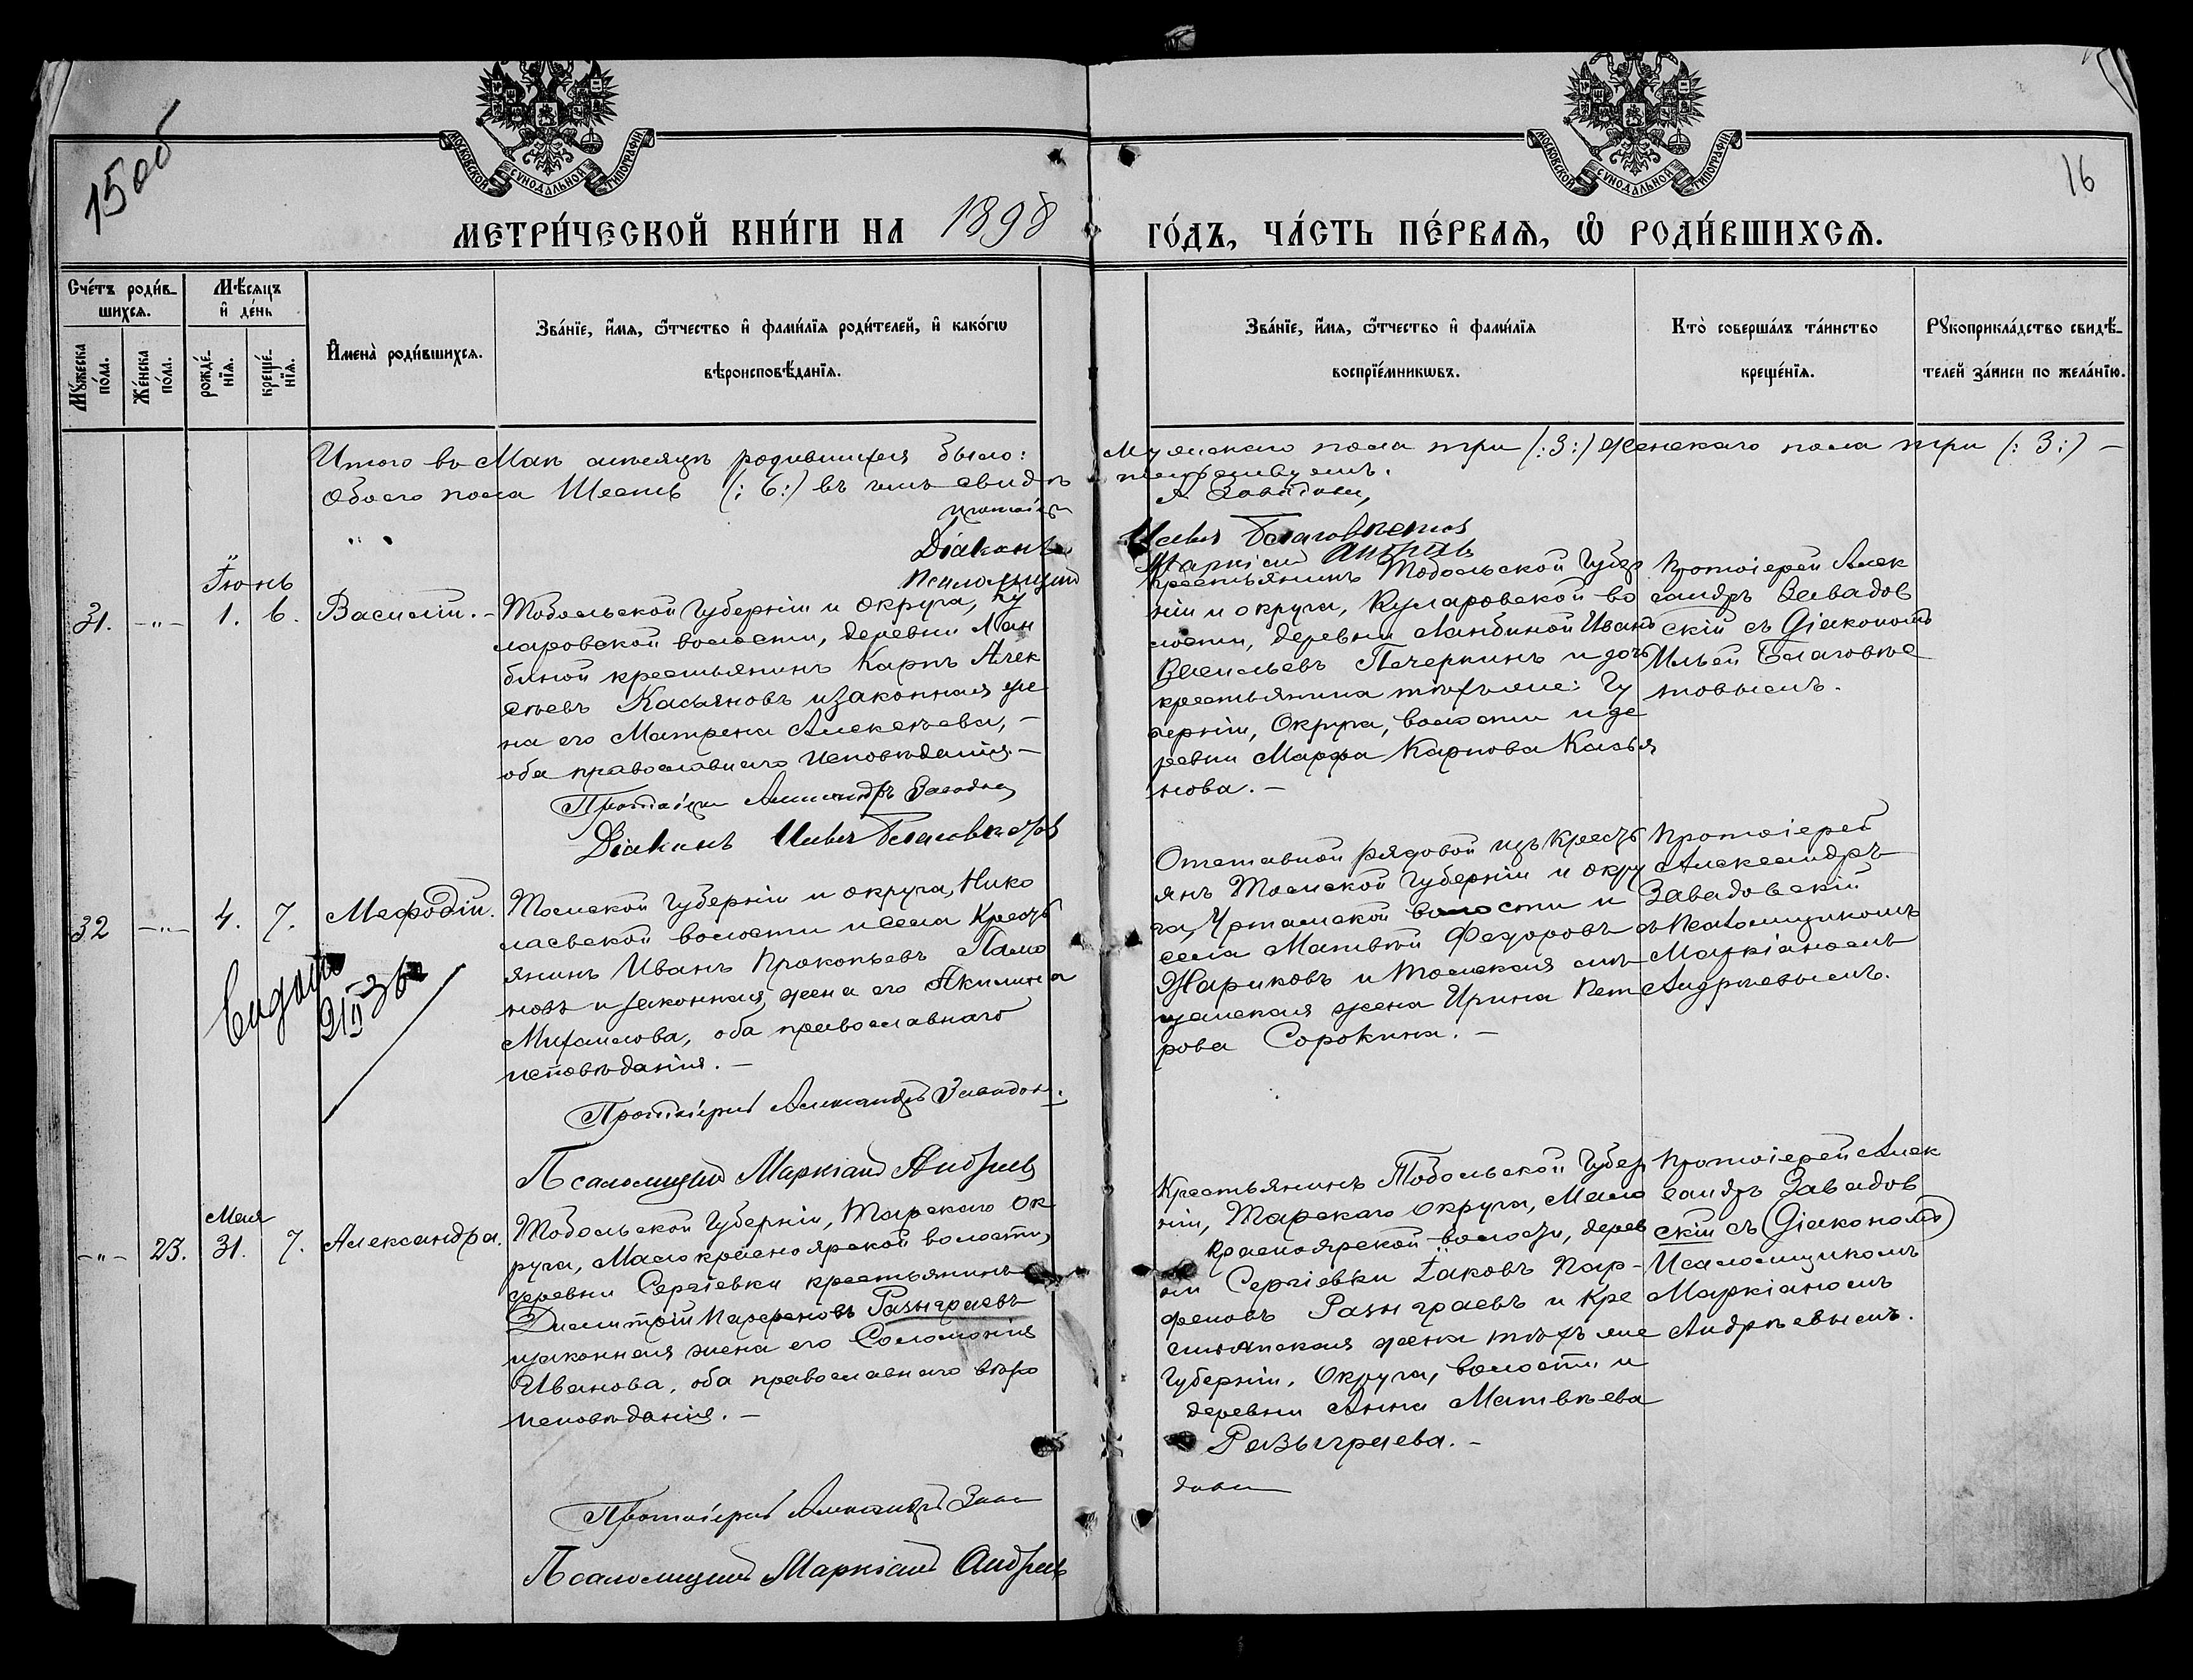 15 об
16
МОСКОВСКОЙ СѴНОДАЛЬНОЙ ТИПОГРАФІИ
МОСКОВСКОЙ СѴНОДАЛЬНОЙ ТИПОГРАФІИ
МЕТРИ́ЧЕСКОЙ КНИ́ГИ НА 1898
ГО́ДЪ, ЧА́СТЬ ПЕ́РВАѦ, Ѡ҆ РОДИ́ВШИХСѦ.
Сче́тъ роди́в-
шихсѧ.
Мꙋ́жеска по́ла.
Же́нска по́ла.
Мѣ́сяцъ
и҆ де́нь
рожде́-нїѧ.
креще́-нїѧ.
И҆мена̀ роди́вшихсѧ.
Зва́нїе, и҆́мѧ, ѻ҆́тчество и҆ фами́лїѧ роди́телей, и҆ како́гѡ
вѣроисповѣ́данїѧ.
Зва́нїе, и҆́мѧ, ѻ҆́тчество и҆ фами́лїѧ
воспрїе́мникѡвъ.
Кто̀ соверша́лъ та́инство
креще́нїѧ.
Рꙋкоприкла́дство свидѣ́-
телей за́писи по жела́нїю.
Итого въ Маѣ мѣсяцѣ родившихся было:
Обоего пола Шесть (: 6 :) въ чемъ свидѣ
Діаконъ
Псаломщикъ
Мужескаго пола три (: 3 :) Женскаго пола три (: 3 :) –
тельствуемъ.
Илья Благовѣстов
Маркіан Андреев
Іюнь
31. –"– 1. 6. Василій. –
Тобольской Губерніи и округа, Ку
ларовской волости, деревни Лан
биной крестьянинъ Карпъ Алек
сѣевъ Касьяновъ и законная же
на его Матрена Алексѣева, –
оба православнаго исповѣданія. –
Протоіерей Александръ Завадов
Діаконъ Илья Благовѣстов
Крестьянинъ Тобольской Губер
ніи и округа, Куларовской во
лости, деревни Ланбиной Иванъ
Васильевъ Печеркинъ и дочь
крестьянина тѣхъ же: Гу
берніи, Округа, волости и де
ревни Марфа Карпова Касья
нова. –
Протоіерей Алек
сандръ Завадов
скій съ Діакономъ
Ильей Благовѣс
товымъ.
32 –"– 4. 7. Мефодій.
Томской Губерніи и округа, Нико
лаевской волости и села Кресть
янинъ Иванъ Прокопьевъ Памо
новъ и законная жена его Акилина
Михаилова, оба православнаго
исповѣданія. –
Протоіерей Александръ Завадов.
Псаломщикъ Маркіанъ Андреев
Отставной рядовой изъ Кресть
янъ Томской Губерніи и окру
га, Уртамской волости и
села Матвѣй Федоровъ
Жариковъ и Томская мѣ
щанская жена Ирина Пет
рова Сорокина. –
Протоіерей
Александръ
Завадовскій
съ Псаломщикомъ
Маркіаномъ
Андреевымъ.
Мая
–"– 23. 31. 7. Александра.
Тобольской Губерніи, Тарскаго Ок
руга, Малокрасноярской волости,
деревни Сергіевки крестьянинъ
Димитрій Парфеновъ Разыграевъ
и законная жена его Соломонія
Иванова, оба православнаго вѣро
исповѣданія. –
Протоіерей Александръ Зава
Псаломщикъ Маркіанъ Андреев
Крестьянинъ Тобольской Губер
ніи, Тарскаго округа, Мало
красноярской волости, дерев
ни Сергіевки Іаковъ Пар-
феновъ Разыграевъ и Кре
стьянская жена тѣхъ же
Губерніи, Округа, волости и
деревни Анна Матвѣева
Разыграева. –
дов
Протоіерей Алек
сандръ Завадов
скій съ (Діакономъ)
Псаломщикомъ
Маркіаномъ
Андреевымъ.